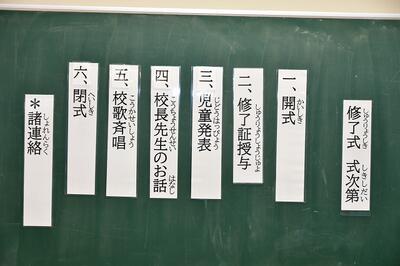 修了式 式次第
しゅうりょうしき しきしだい
一、開式
かいしき
二、修了証授与
しゅうりょうしょうじゅよ
三、児童発表
じどうはっぴょう
四、校長先生のお話
こうちょうせんせい はなし
五、校歌斉唱
こうかせいしょう
六、閉式
へいしき
＊諸連絡
しょれんらく